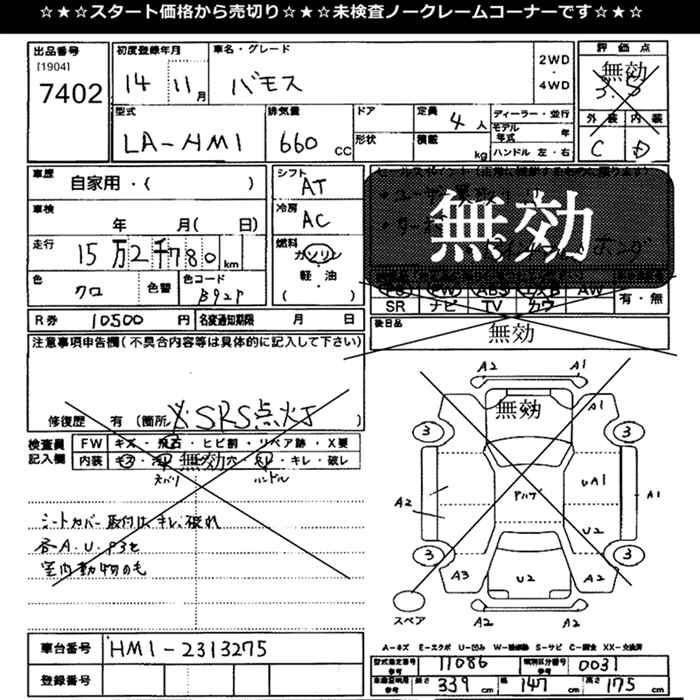 ☆★☆★スタート価格から売切り☆★☆★未検査ノークレームコーナーです☆★☆
出品番号 初度登録年月 車名・グレード 評価点
[1904] 14 11月 バモス 2WD・4WD 無効
7402 3.5
型式 排気量 ドア 定員 4人 ディーラー・並行 外装 内装
LA-HM1 660cc 形状 積載 kg モデル年式 年 C D
ハンドル 左・右
車歴 自家用・( ) シフト AT
車検 年 月( 日) 冷房 AC 無効
走行 15万2千780km 燃料 ガソリン
軽・油
色 クロ 色替 色コード B92P ( )
PS PW ABS エアB AW 有・無
SR ナビ TV カワ
R券 10500円 名変通知期限 月 日 後日品 無効
注意事項申告欄(不具合内容等は具体的に記入して下さい)
修復歴 有 (箇所 X SRS点灯 )
検査員記入欄 FW キズ・飛石・ヒビ割・リペア跡・X要
内装 無効 穴・キレ・破レ
ハンドル
シートカバー取付け、キレ、破れ
各A.U.P3キ
室内動物のモ
A2 A1
無効 A1
3 3
A2 アハブ UA1 A1
U2
3 3
A3 U2 A2
スペア A2
A-キズ E-エクボ U-凹み S-サビ C-腐食 XX-交換済
車台番号 HM1-2313275
登録番号
型式指定番号 参考 11086 類別区分番号 参考 0031
長さ 339cm 幅 147cm 高さ 175cm